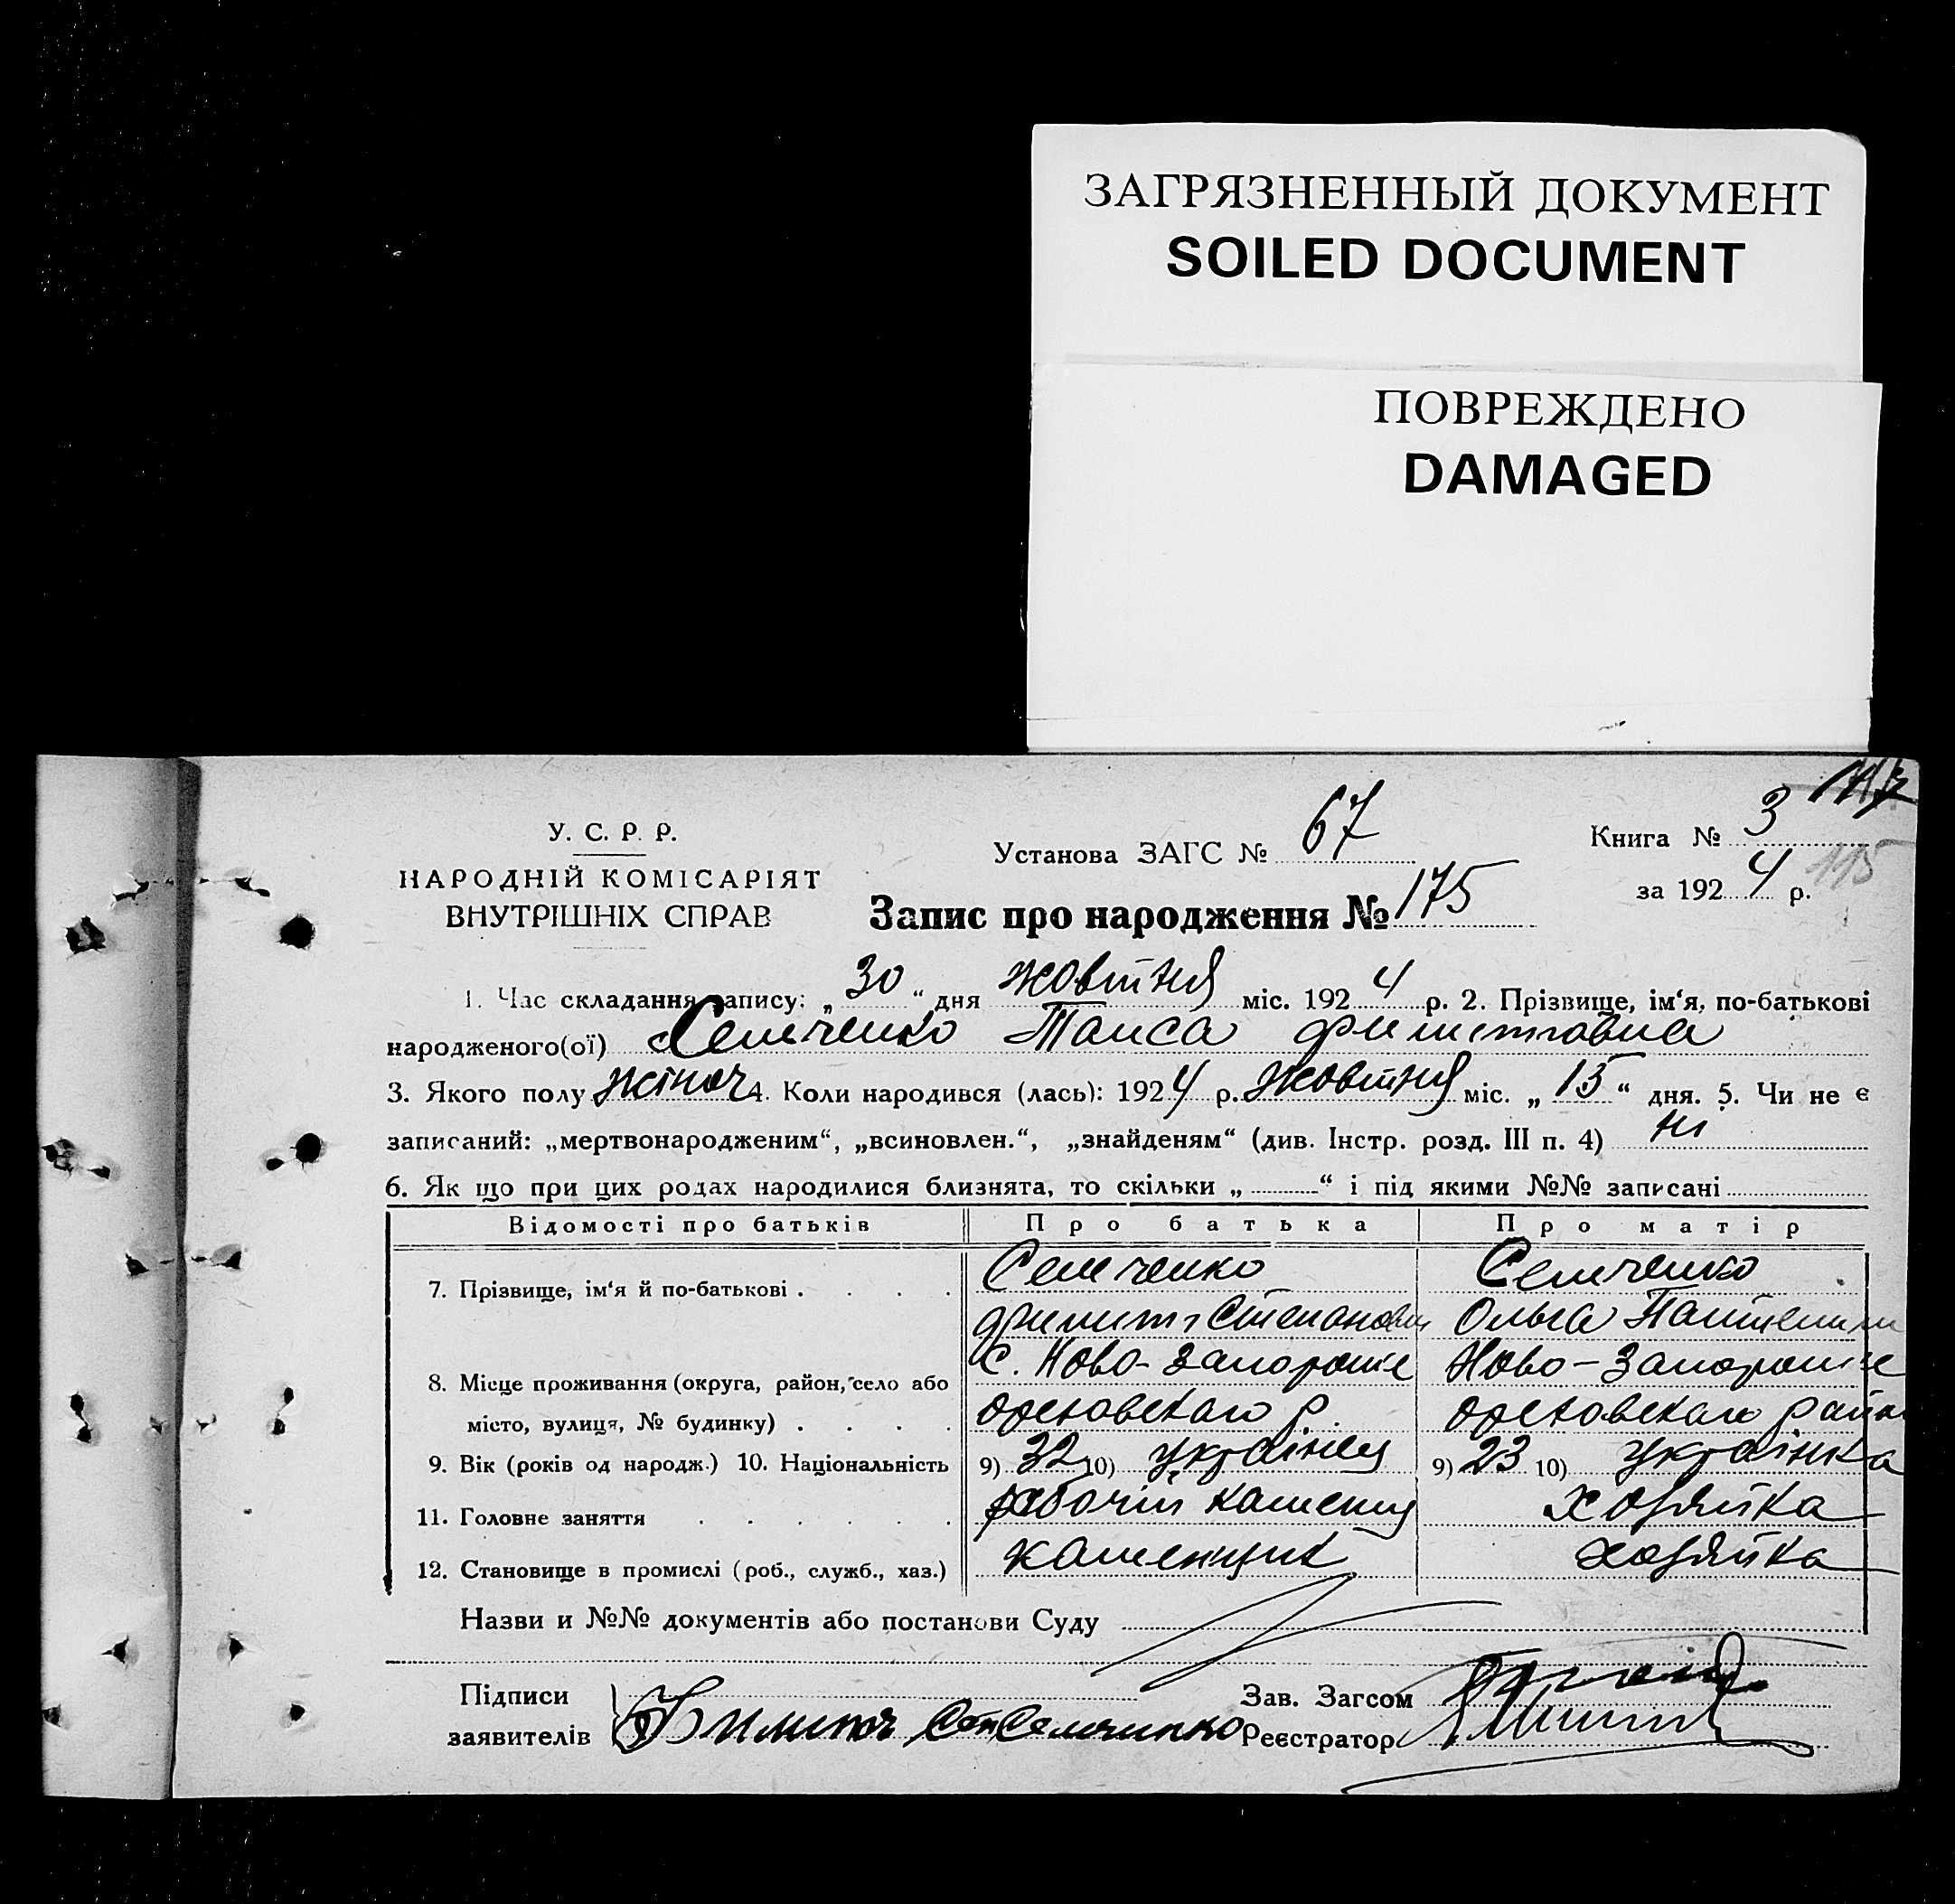 ЗАГРЯЗНЕННЫЙ ДОКУМЕНТ
SOILED DOCUMENT
ПОВРЕЖДЕНО
DAMAGED
У. С. Р. Р.
НАРОДНІЙ КОМІСАРІЯТ
ВНУТРІШНІХ СПРАВ
Установа ЗАГС № 67
Книга № 3
115
за 1924 р.
Запис про народження № 175
1. Час складання запису: „30“ дня жовтня міс. 1924 р. 2. Прізвище, ім‘я, по-батькові
народженого(ої) Семченко Таиса
3. Якого полу жіноч 4. Коли народився (лась): 1924 р. жовтня міс. „15“ дня. 5. Чи не є
записаний: „мертвонародженим“, „всиновлен.“, „знайденям“ (див. Інстр. розд. III п. 4) ні
6. Як що при цих родах народилися близнята, то скільки „ “ і під якими №№ записані
Відомості про батьків Про батька Про матір
7. Прізвище, ім‘я й по-батькові Семченко Семченко
Ольга
8. Місце проживання (округа, район, село або с. Ново-Запорожье Ново-Запорожье
місто, вулиця, № будинку) Ореховскаго р Ореховскаго район
9. Вік (років од народж.) 10. Національність 9) 32 10) українец 9) 23 10) українка
11. Головне заняття рабочій каменщ хозяйка
12. Становище в промислі (роб., служб., хаз.) каменщик хозяйка
Назви и №№ документів або постанови Суду
Підписи
заявителів
Зав. Загсом
Реєстратор